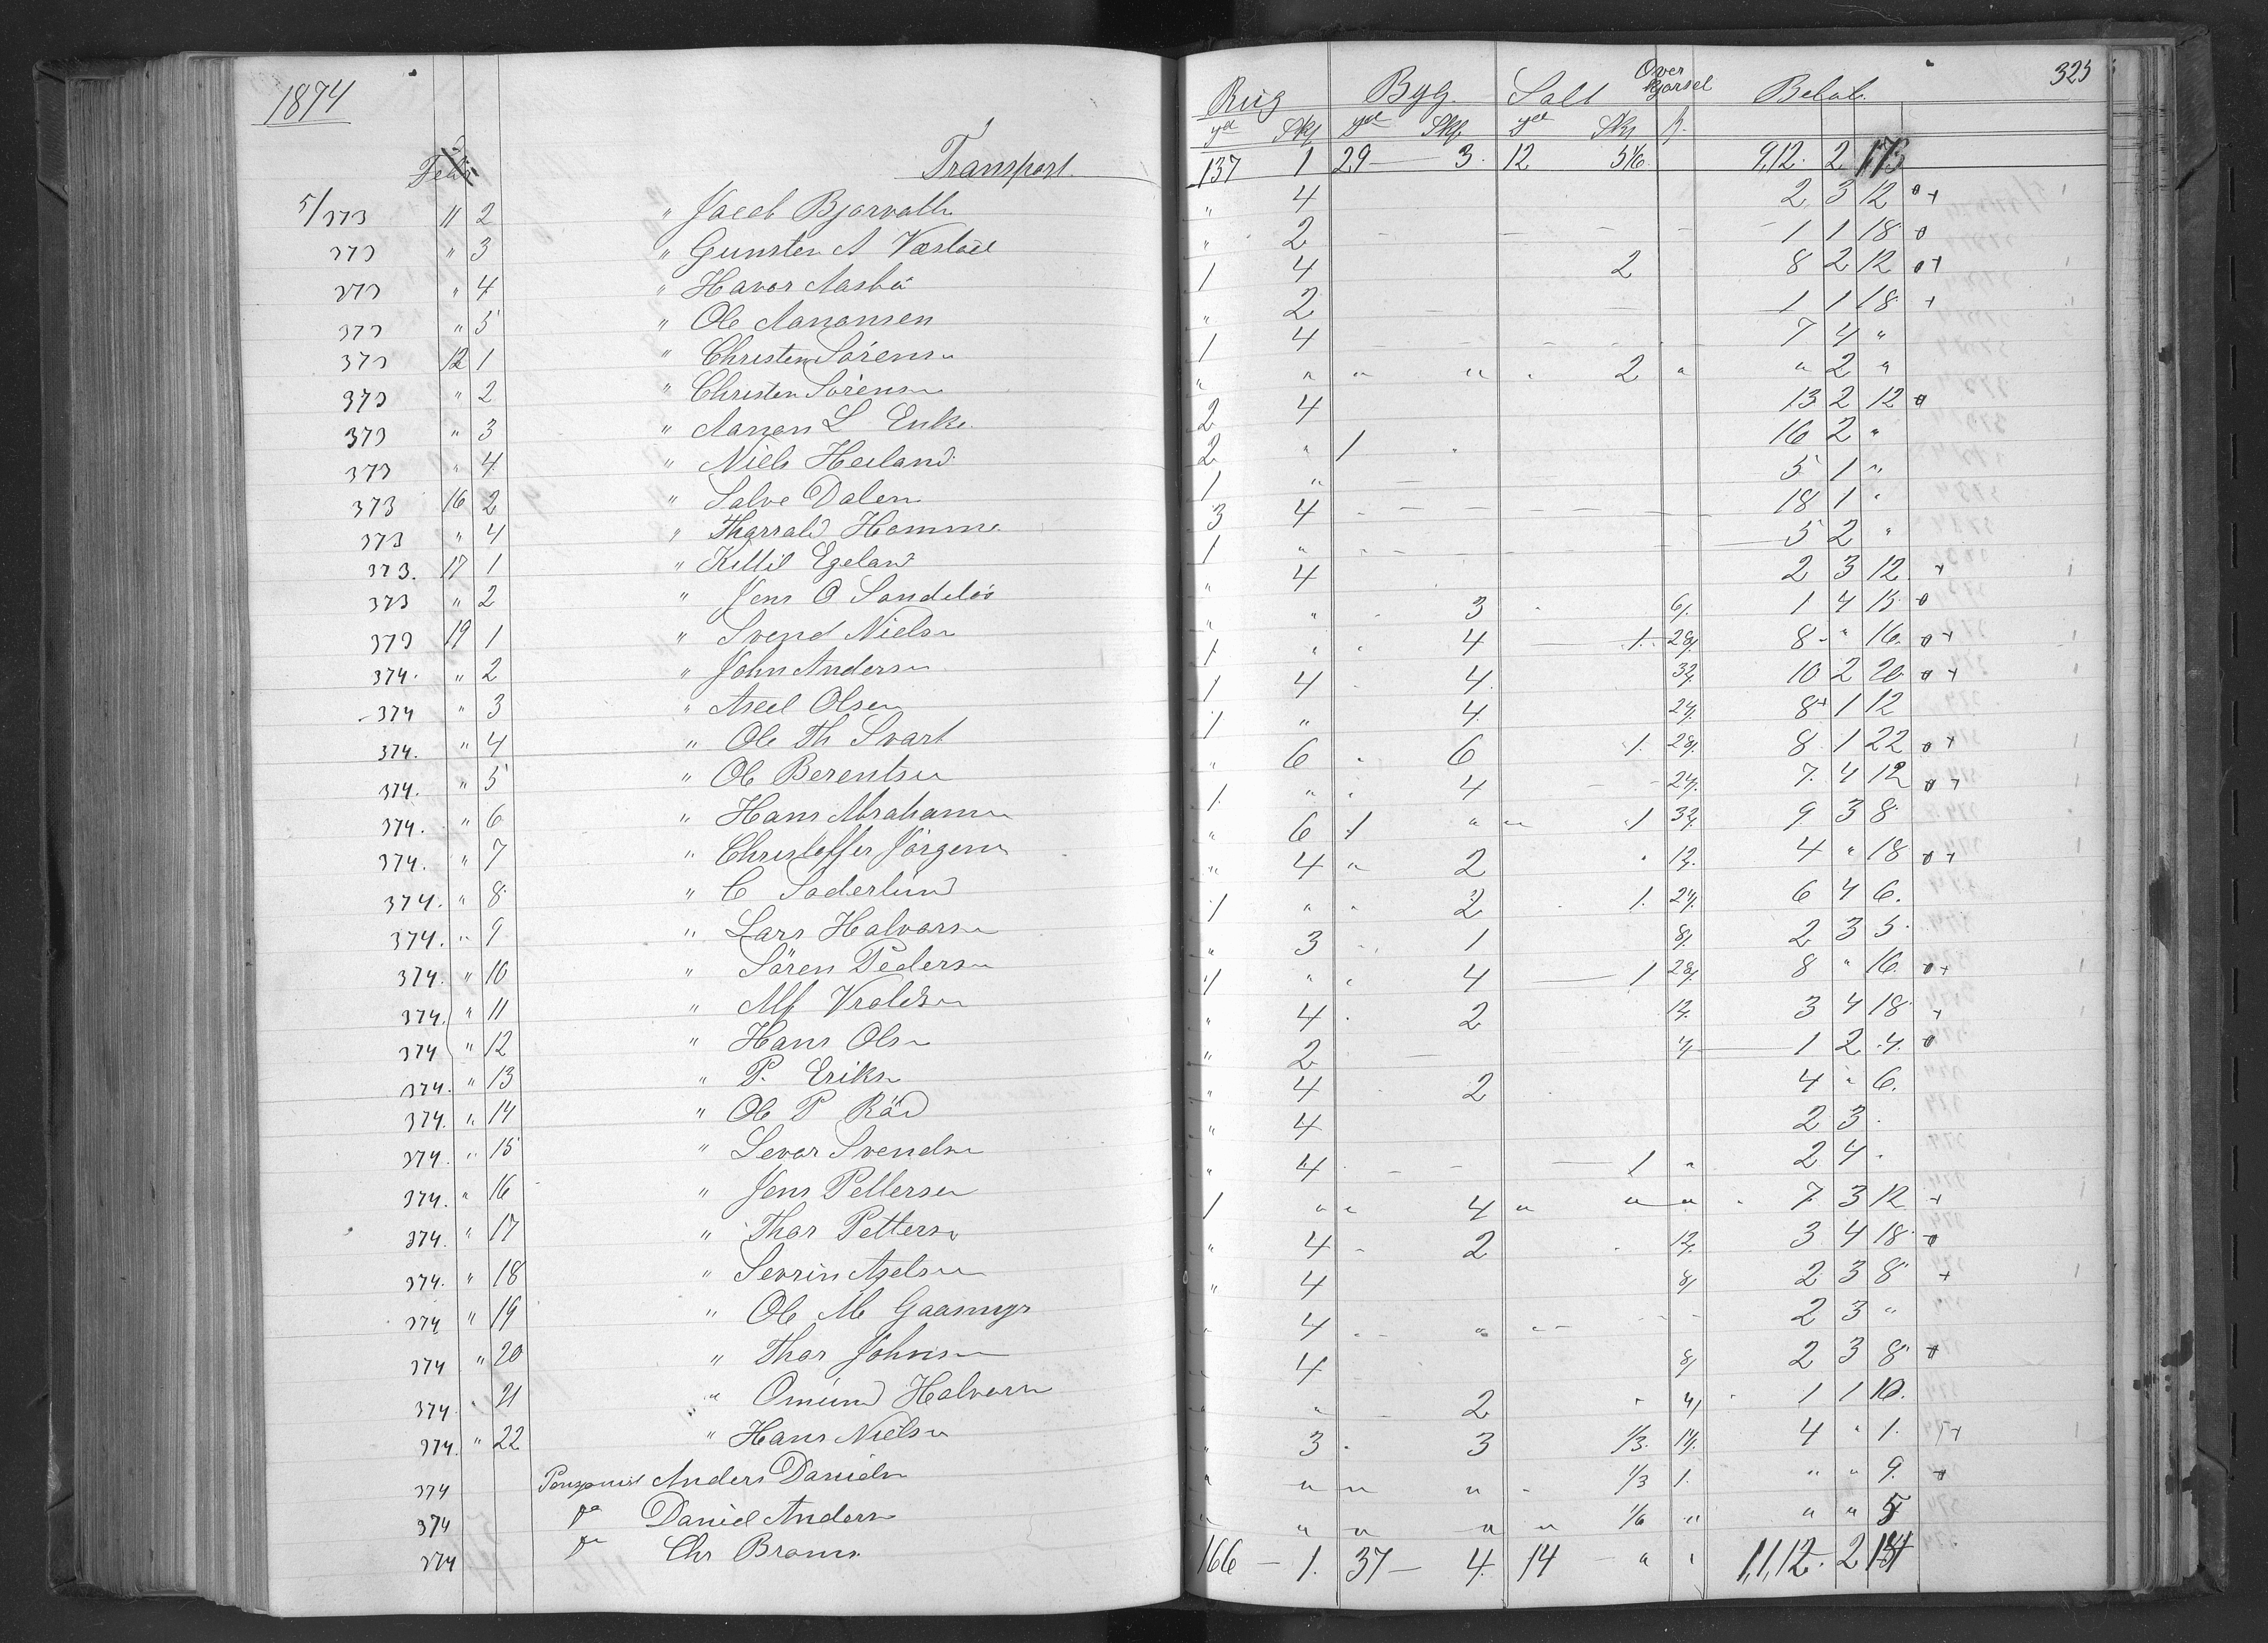 1874
Febr Transport
5/373 " 2 " Jacob Bjorvatn
373 " 3 " Gunsten A Væstøel
373 " 4 " Havor Aasbø
373 " 5 " Ole Aanonsen
373 12 1 " Christen Sörensn
373 " 2 " Christen Sörensn
373 " 3 " Aanon L
373 " 4 " Niels Heiland
373 16 2 " Salve Dalen
373 " 4 " Tharrald Homme
373. 17 1 " Kittil Egeland
373 " 2 " Jens O
373 19 1 " Svend Nielsn
374. " 2 " John Andersn
374 " 3 " Axel Olsen
374. " 4 " Ole Th Svart
374. " 5 " Ole Berentsen
374. " 6 " Hans Abrahamsn
374. " 7 " Christoffer Jörgensn
374. " 8 " C Soderlund
374. " 9 " Lars Halvorsn
374. " 10 " Sören Pedersn
374. " 11 " Alf Vroldsn
374 " 12 " Hans Olsn
374. " 13 " P. Eriksn
374. " 14 " Ole P Röd
374. " 15 " Sevar Svendsn
374. " 16 " Jens Pettersen
374. " 17 " Thor Pettersn
374. " 18 " Sevrin Axelsen
374 " 19 " Ole M Gaasmyr
374 " 20 " Thor Johnsn
374 " 21 " Omund Halvorsn
374. " 22 " Hans Nielsn
374 Anders Danielsn
374 do Daniel Andersn
374 do Chr Broms
325
Rug Byg. Salt Over kjørsel Beløb.
Td Skp Td Skp Td Skp ß.
137 1 29 — 3. 12 5 1/6 9,12. 2
" 4 2 3 12 o+
" 2 1 1 18 o
1 4 2 8 2 12 o+
" 2 1 1 18 +
1 4 7 4 "
" " " " " 2 " " 2 "
2 4 13 2 12 o
2 " 1 " 16 2 "
1 " 5 1 "
3 4 18 1 "
1 " 5 2 "
" 4 2 3 12 +
" " 3 6/. 1 4 15 o
1 " " 4 1. 28/. 8 " 16. o+
1 4 4. 32/. 10 2 20 o+
1 " 4. 24/. 8 1 12
" 6 6 1. 28/. 8 1 22 o+
1. " " 4 24/. 7. 4 12 o+
" 6 1 " " 1 32/. 9 3 8
" 4 " 2 " 12/. 4 " 18 o+
1 " " 2 1. 24/. 6 4 6.
" 3 1 8/. 2 3 5.
1 " " 4 1 28/. 8 " 16. o+
" 4 2 12/. 3 4 18 +
" 2 4/. 1 2 4. o
" 4 2 4 " 6.
" 4 2 3
" 4 1 " 2 4 "
1 " " 4 " " " 7. 3 12 +
" 4 2 12/. 3 4 18 o
" 4 8/. 2 3 8 +
" 4 " 2 3 "
4 8/ 2 3 8 o
" 2 " 4/ 1 1 10.
" 3 3 1/3. 14/. 4 " 1. +
" " " " 1/3 1. " " 9. o
" " " " " 1/6 " " " 5
166 — 1. 37 — 4. 14 " " 1,1,12. 2